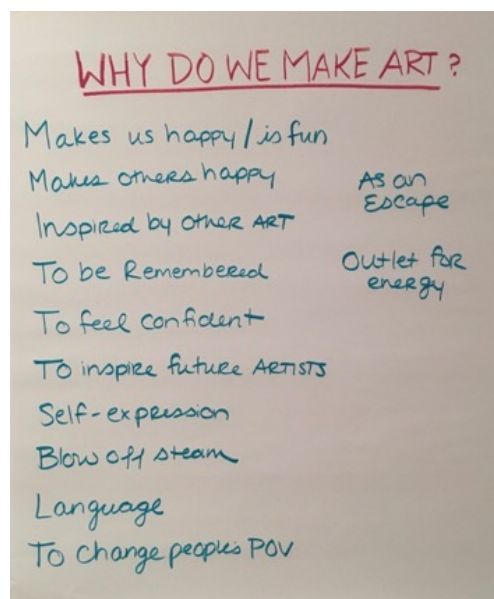 WHY DO WE MAKE ART?
Makes us happy/is fun
Makes others happy
Inspired by other ART
To be Remembered
To feel confident
To inspire future ARTISTS
Self-expression
Blow off steam
Language
To change people's POV
As an
Escape
Outlet for
energy